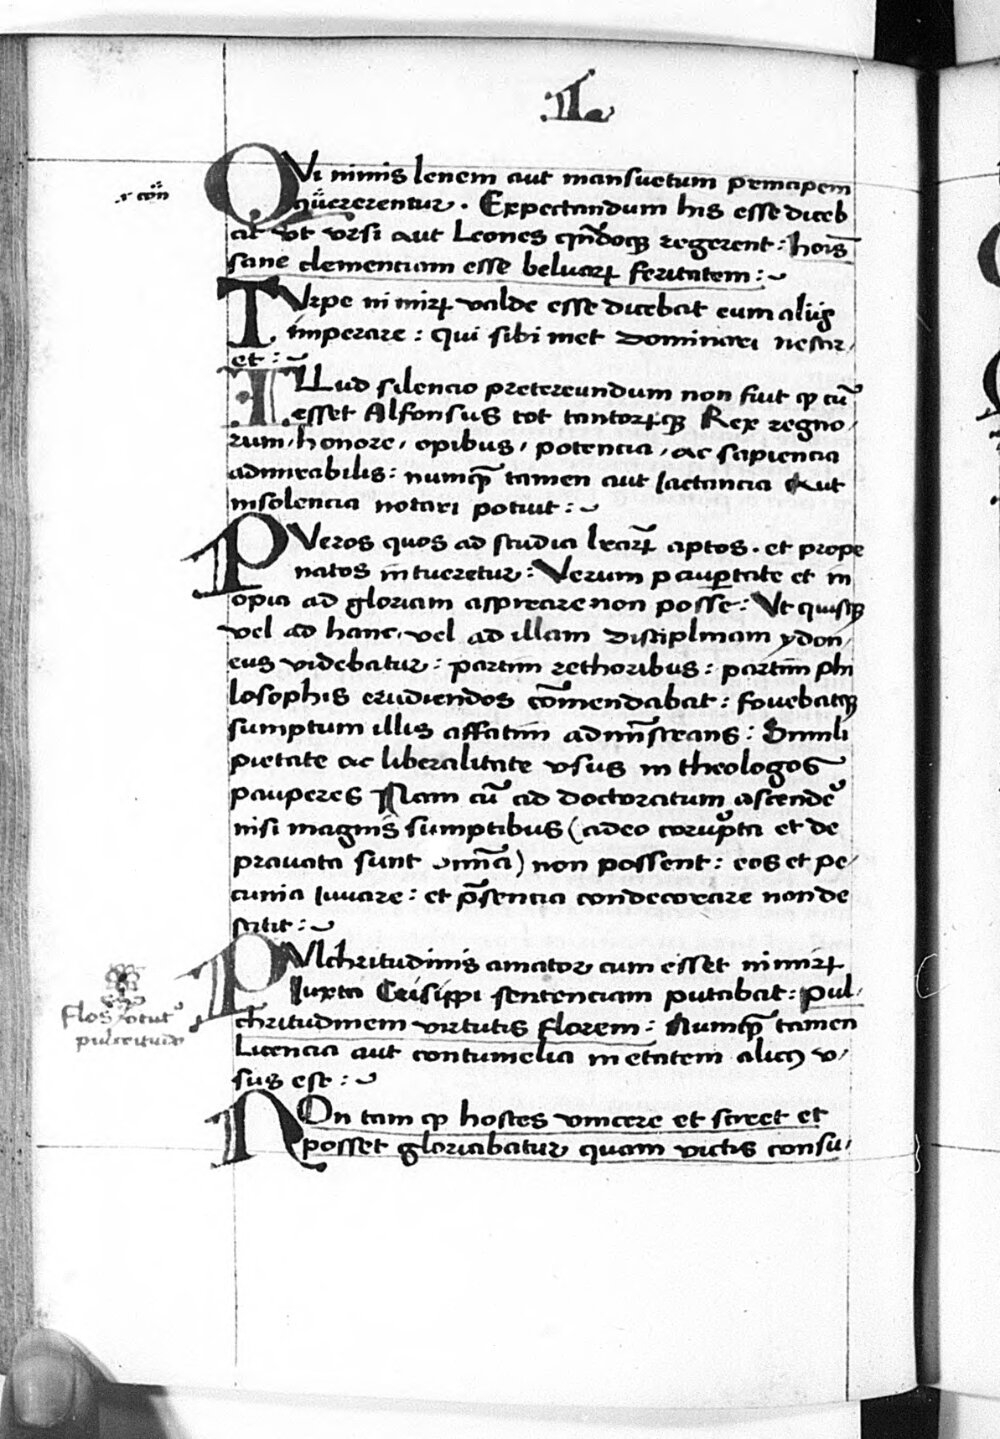 .I.
QVi nimis lenem aut mansuetum principem
quererentur. Expectandum his esse diceb
at vt vrsi aut Leones qñdoqꝫ regerent: hoĩs
sane clementiam esse beluarꝝ feritatem:
TVrpe nimirꝝ valde esse dicebat eum aliis
imperare: qui sibi met dominari nescir,
et:
ILLud silencio pretereundum non fuit ꝙ cũ
esset Alfonsus tot tantorꝝqꝫ Rex regno,
rum, honore, opibus, potencia, ac sapiencia
admirabilis: numqᷓ tamen aut Iactancia Aut
insolencia notari potuit:
PVeros quos ad studia lr̃arꝝ aptos. et prope
natos intueretur: Verum paup̱tate et in
opia ad gloriam aspirare non posse: Vt quisqꝫ
vel ad hanc, vel ad illam disciplinam ydon,
eus videbatur: partim rethoribus: partim phi
losophis erudiendos cõmendabat: fovebatqꝫ
sumptum illis affatim admĩstrans: Simili
pietate ac liberalitate vsus in theologos
pauperes Nam cũ ad doctoratum ascendẽ
nisi magnis sumptibus (adeo corupta et de
pravata sunt omĩa) non possent: eos et pe,
cunia Iuvare: et p̃sencia condecorare non de
sitit:
PVlchritudinis amator cum esset nimirꝝ
Iuxta Crisippi sentenciam putabat: Pul,
chritudinem virtutis florem: Numqᷓ tamen
Licencia aut contumelia in etatem alicꝰ v,
sus est:
flos virtut
pulcritudo
NOn tam ꝙ hostes vincere et sciret et
posset gloriabatur quam victis consu,